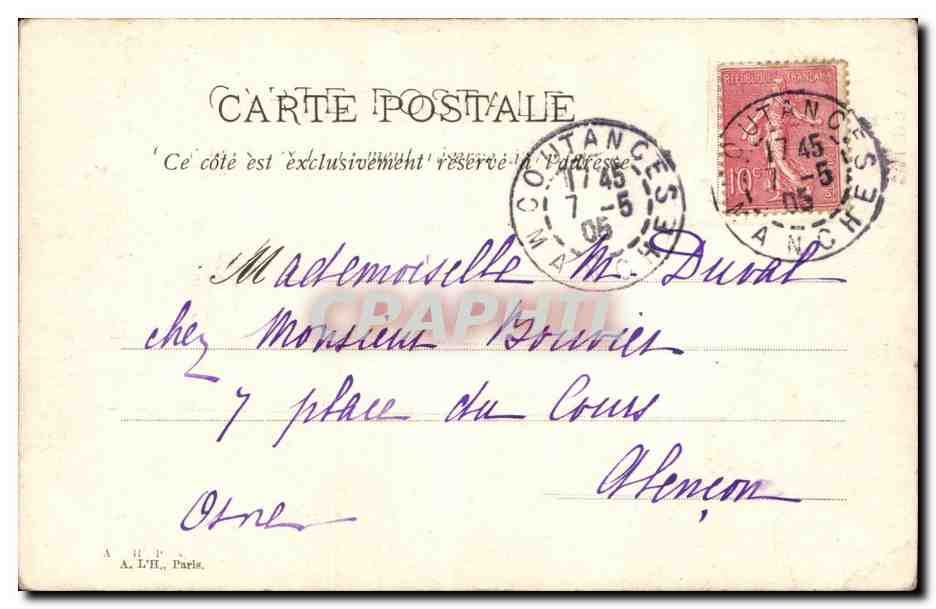 CARTE POSTALE
Ce côté est exclusivement réservé à l'adresse.
RÉPUBLIQUE FRANÇAISE
10 c
COUTANGES
17 45
7 - 5
05
MANCHE
COUTANGES
17 45
7 - 5
05
MANCHE
Mademoiselle M. Duval
chez Monsieur Bouvier
7 place du Cours
Alençon
Orne
CRAPHTI
A. L'H., Paris.